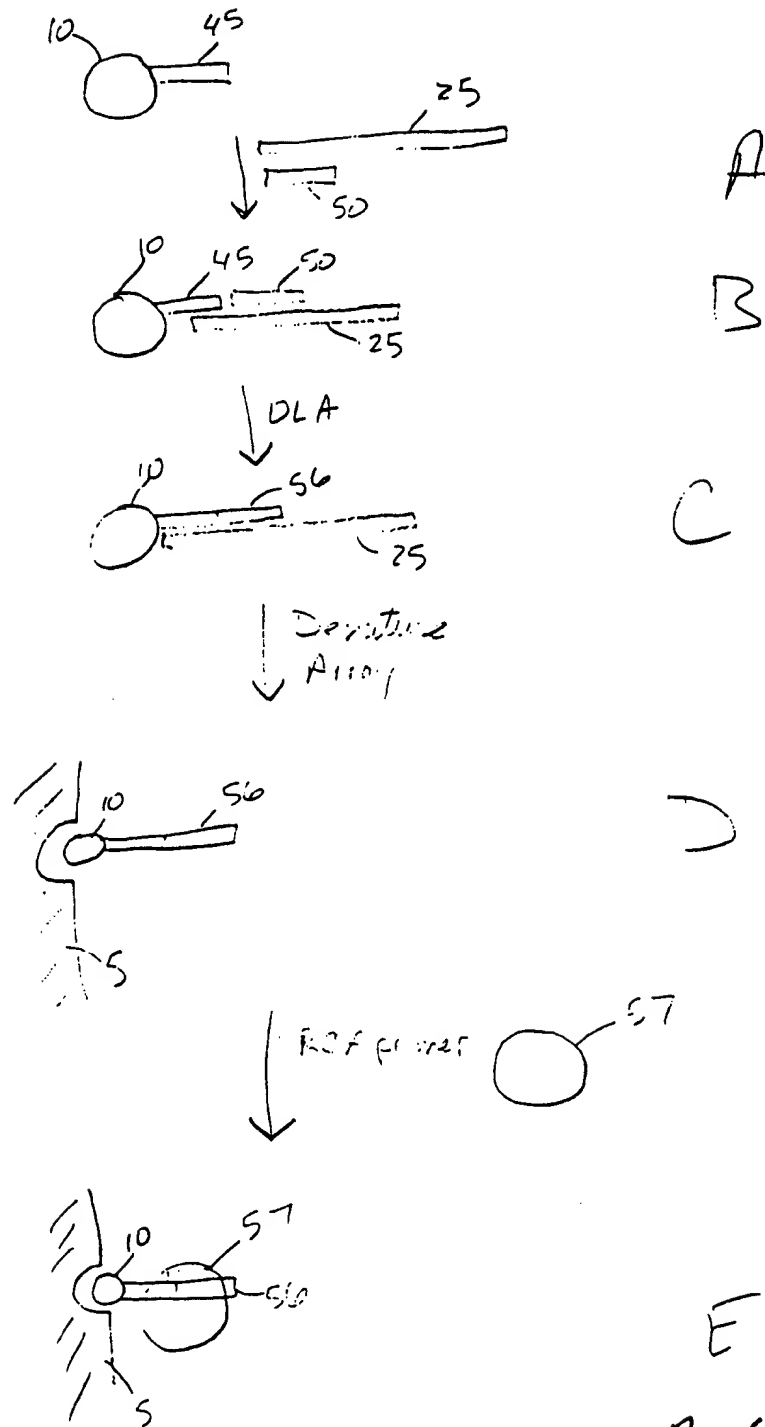 10 45
25
A
50
10 45 50
B
25
OLA
10 56
C
25
Denature
Array
10 56
D
5
RCA primer 57
10 57
56
E
5